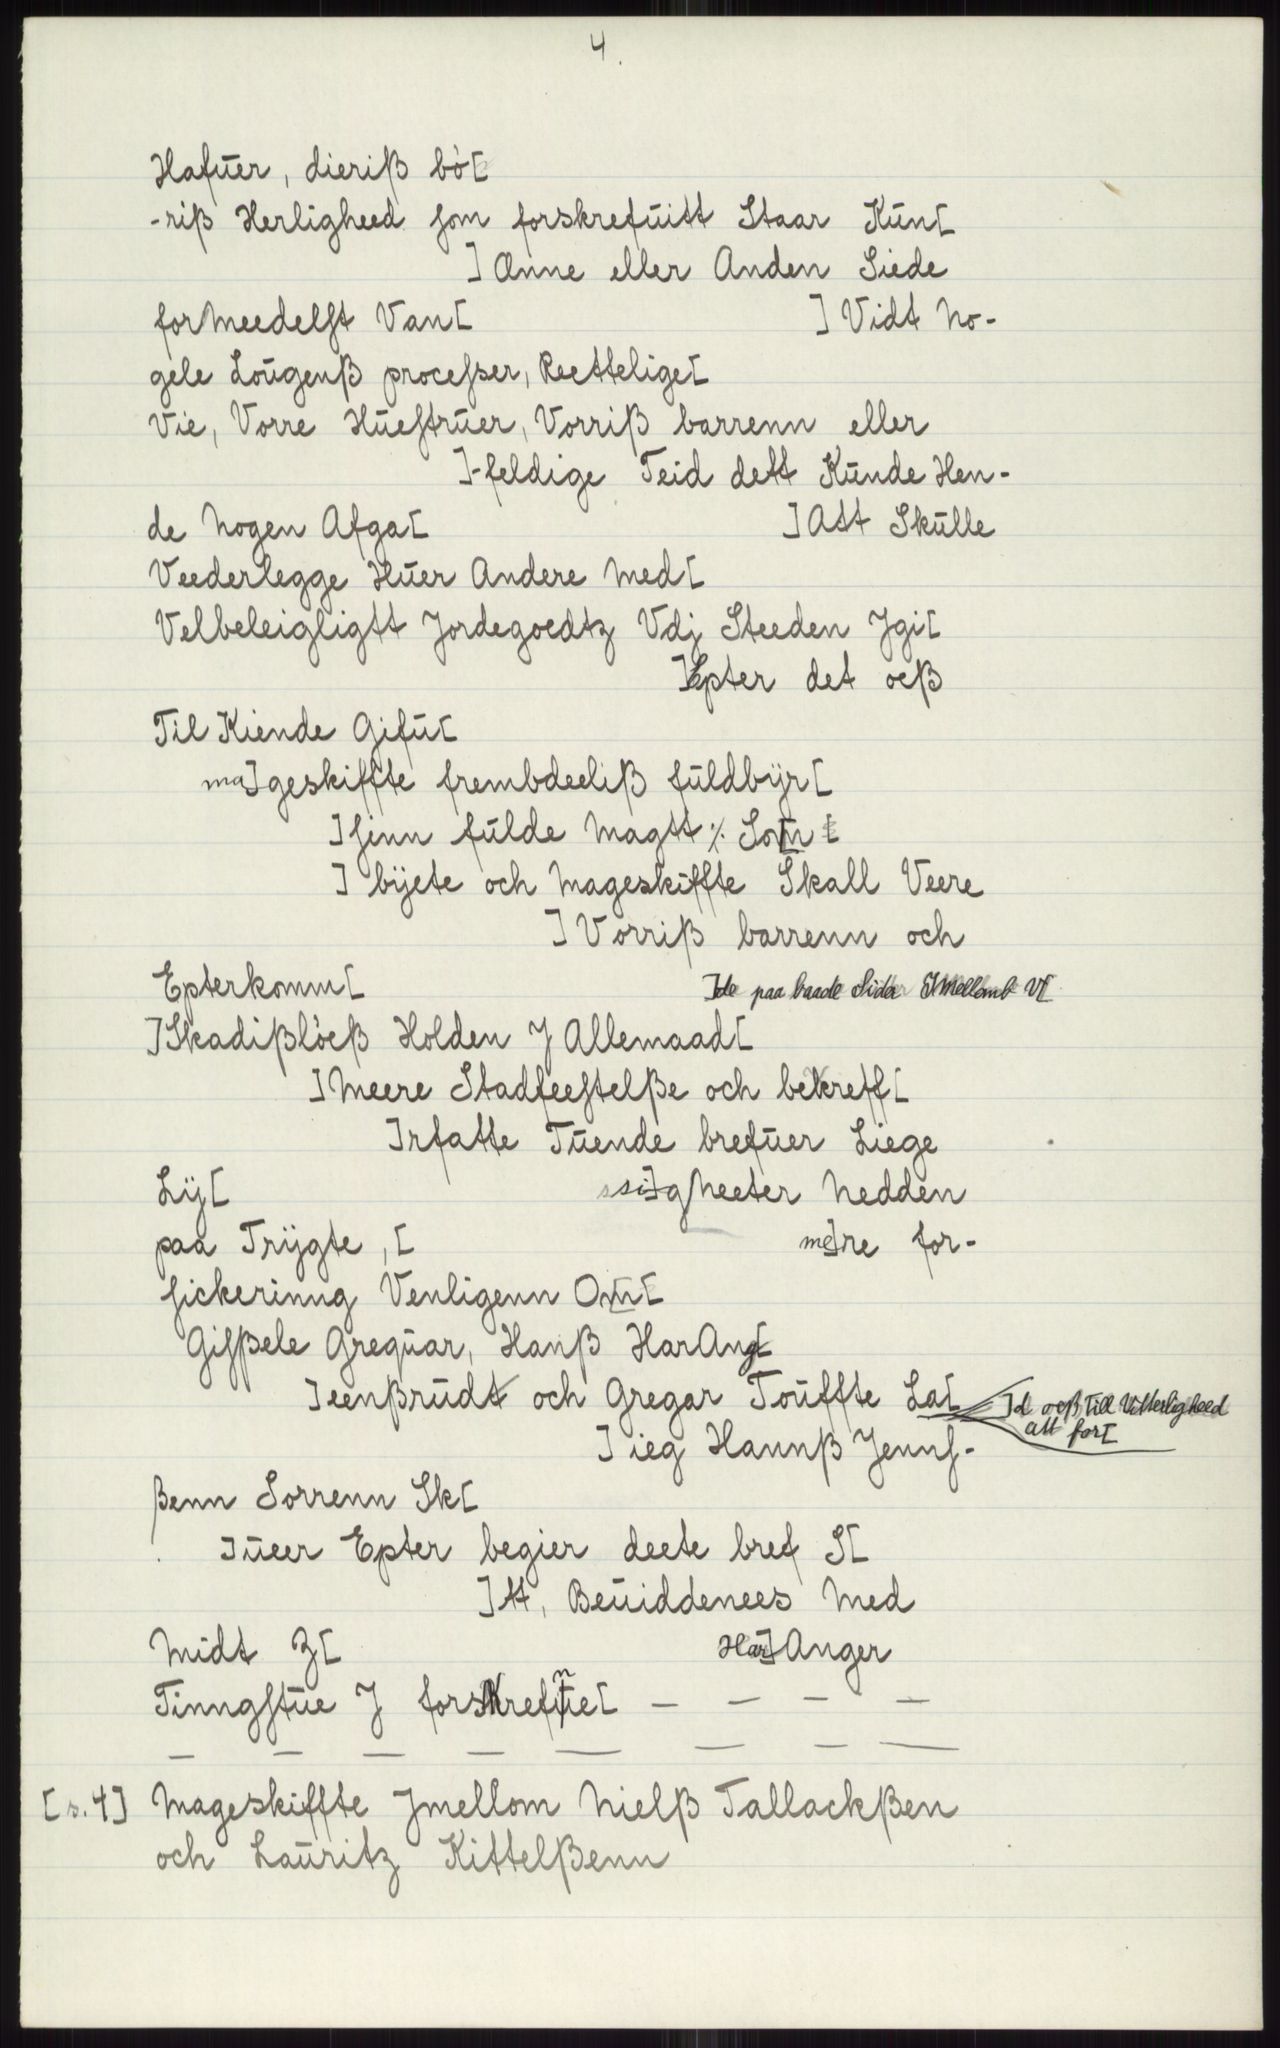 4.
Hafuer, dieriß bó[
-riß Herligheed som forskrefuitt Staar Kun[
] Ønne eller Anden Siede
formeedelst Van[ ] Vidt No-
gele Lougenß processer, Reettelige[
Vie, Vorre Huestruer, Vorriß barrenn eller
]-feldige Teid dett Kunde Hen-
de Nogen Afga[ ] Att Skulle
Veederlegge Huer Andere Med[
Velbeleigligtt Jordegoedtz Vdj Steeden Jgi[
] Epter det oeß
Til Kiende Gifu[
ma]geskiffte frembdeeliß fuldbÿr[
] sinn fulde Magtt ⁒ Som [
] bÿete och Mageskiffte Skall Veere
] Vorriß barrenn och
Epterkomm[ ]de paa baade Sider Jmellomb V[
]Skadißlòeß Holden J Allemaad[
] Meere Stadfeestelße och bekreff[
]rfatte Tuende brefuer Liege
Lÿ[ ssi]gheeter Nedden
paa Trÿgte, [ me]re for-
sickerinng Venligenn Om[
Gisßele Greguar, Hanß HarAng[
]eenßrudt och Gregar Touffte La[ ]d oeß Till Vitterligheed
att for[
] ieg Hannß Jenns-
ßenn Sorrenn Sk[
]ueer Epter begier deete bref S[
]tt, Beuiddenees Med
Midt Z[ Har]Anger
Tinngstue J forskrefne[ — — — —
— — — — — — — —
[s. 4] Mageskiffte Jmellom Nielß Tallackßen
och Lauritz Kittelßenn